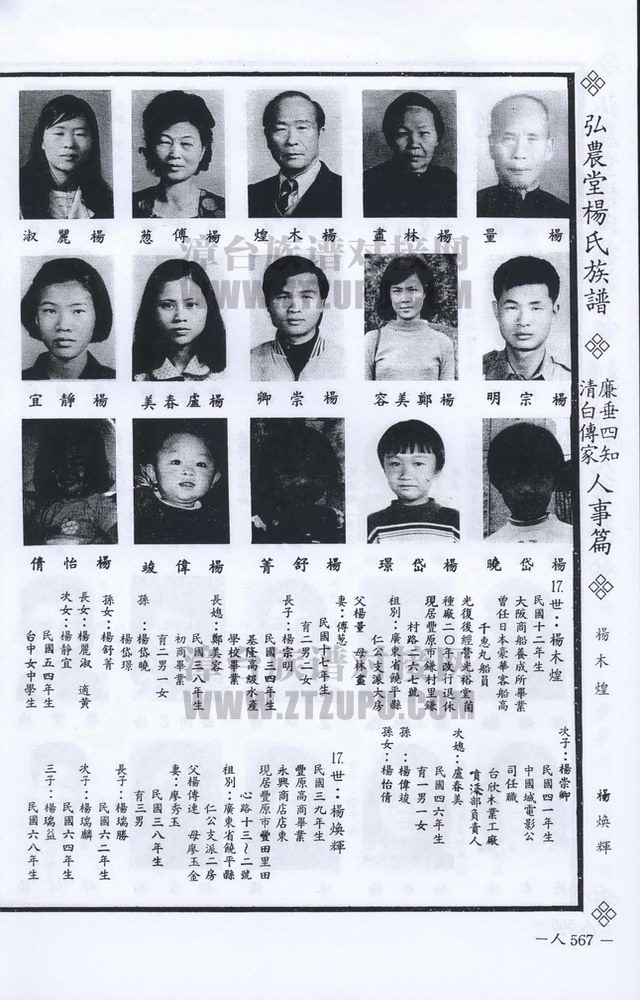 弘農堂楊氏族譜
廉垂四知
清白傳家
人事篇
楊木煌
楊煥輝
—人 567—
楊量
楊林畫
楊木煌
楊傅葱
楊麗淑
楊宗明
楊鄭美容
楊崇卿
楊盧春美
楊靜宜
楊岱曉
楊岱璟
楊舒菁
楊偉竣
楊怡倩
17.世：楊木煌
民國十二年生
大阪商船養成所畢業
曾任日本豪華客船高
千惠丸船員
光復後經營光裕堂菌
種廠二〇年改行退休
現居豐原市鎌村里鎌
村路六六七號
祖別：廣東省饒平縣
仁政派大房
父楊量 母林畫
妻：傅葱
民國十七年生
育二男二女
長子：楊宗明
民國三四年生
基隆高級水產
學校畢業
長媳：鄭美容
民國三八年生
初商畢業
育二男一女
孫：楊岱曉
楊岱璟
孫女：楊舒菁
長女：楊麗淑 適黃
次女：楊靜宜
民國五四年生
台中女中學生
次子：楊崇卿
民國四一年生
中國城電影公
司任職
台欣木業工廠
噴漆部負責人
次媳：盧春美
民國四六年生
育一男一女
孫：楊偉竣
孫女：楊怡倩
17.世：楊煥輝
民國三九年生
豐原高商畢業
永興商店店東
現居豐原市豐田里田
心路十三～二號
祖別：廣東省饒平縣
仁公支派二房
父楊傳達 母廖玉金
妻：廖秀玉
民國三八年生
育三男
長子：楊瑞勝
民國六二年生
次子：楊瑞麟
民國六四年生
三子：楊瑞益
民國六八年生
漳台族谱对接网
WWW.ZTZUPU.COM
漳台族谱对接网
WWW.ZTZUPU.COM